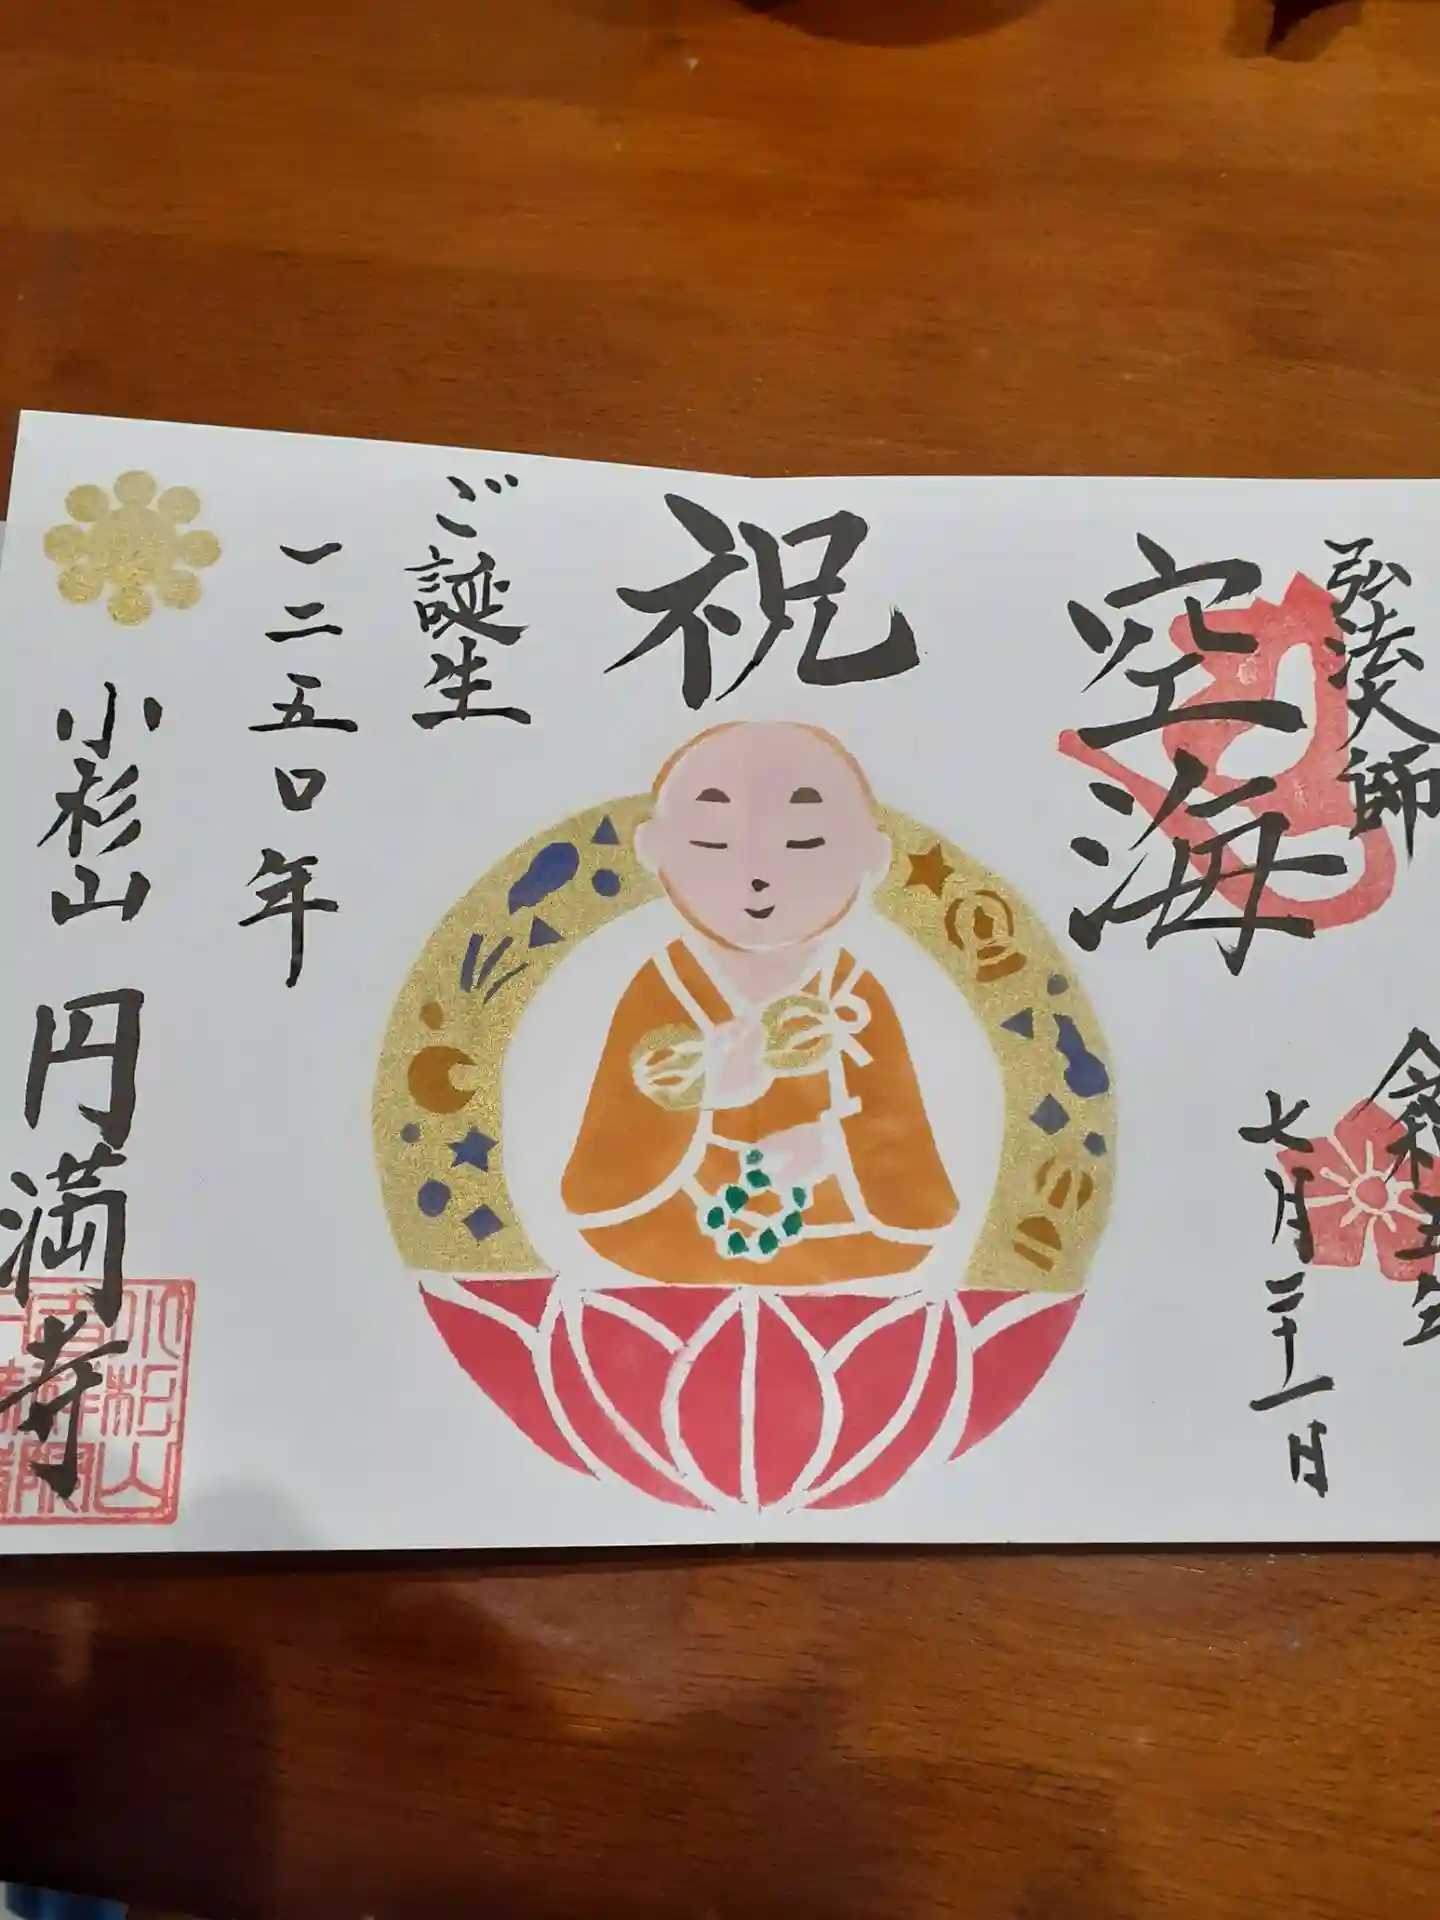 弘法大師
空海
令和五年
七月三十一日
祝
ご誕生
一二五〇年
小杉山
円満寺